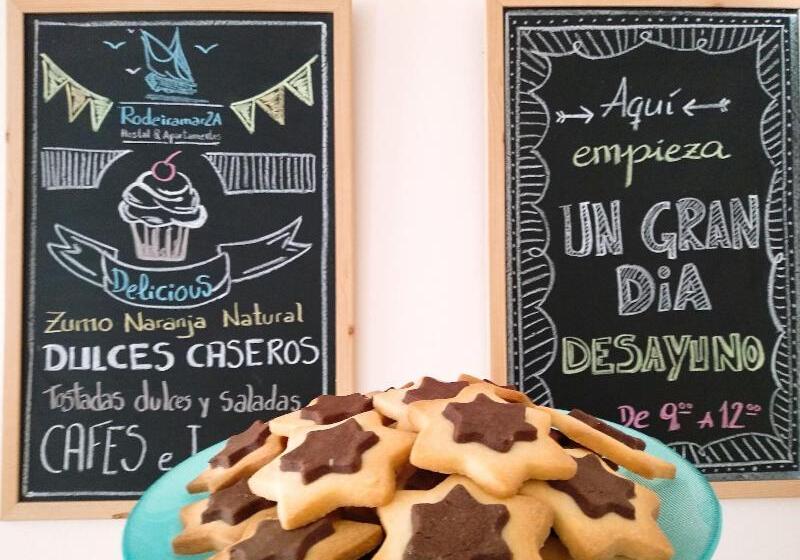 Rodeiramar2A
Hostal & Apartamentos
Delicious
Zumo Naranja Natural
DULCES CASEROS
Tostadas dulces y saladas
CAFES e
Aquí
empieza
UN GRAN
DiA
DESAYUNO
De 9ºº A 12ºº